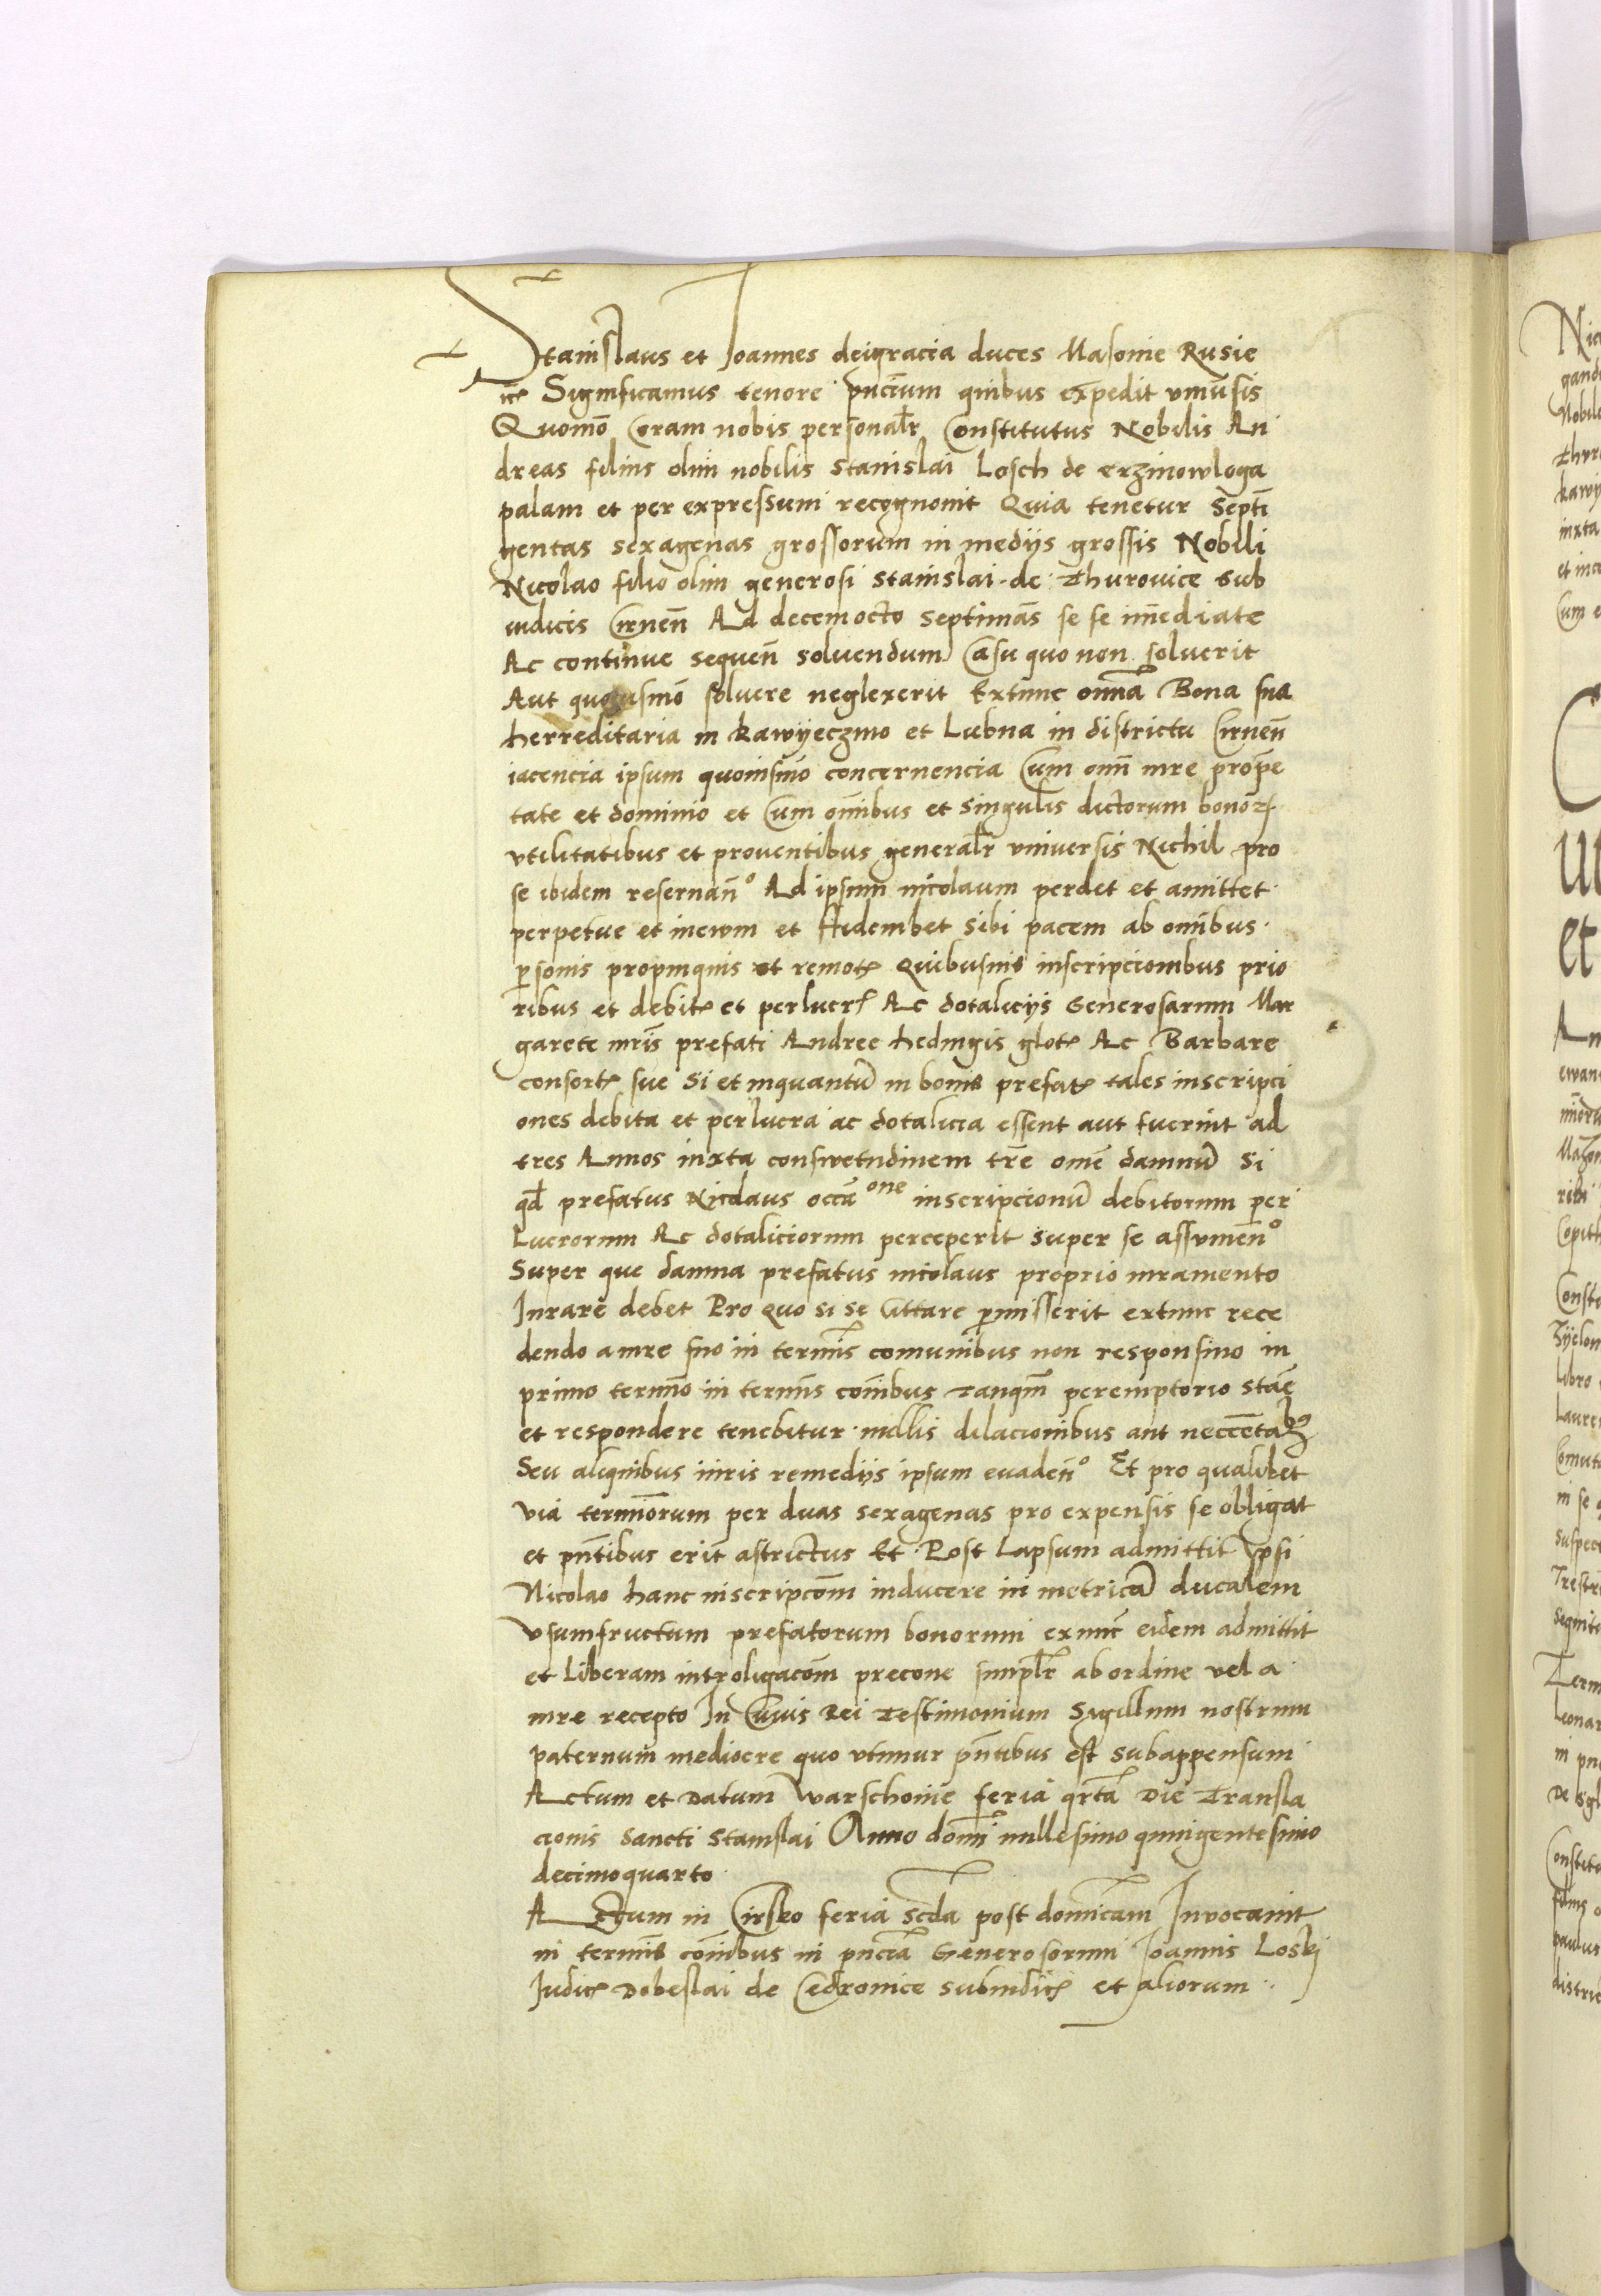 Stanislaus et Joannes deigracia duces Masonie Rusie
etc Significamus tenore pn̄cium quibus expedit vniūsis
Quomō Coram nobis personalr̄ Constitutus Nobilis An
dreas filius olim nobilis Stanislai Losch de Crzinowloga
palam et per expressum recognouit Quia tenetur Septī
gentas sexagenas grossorum in medijs grossis Nobili
Nicolao filio olim generosi Stanislai de Thurovice Sub
iudicis Cirnen̄ Ad decemocto septimās se se im̄ediate
Ac continue sequen̄ soluendum Casu quo non soluerit
Aut quouismō soluere neglexerit Extunc om̄ia Bona sua
herreditaria in kawyeczino et Lubna in districtu Cirnen̄
iacencia ipsum quouismō concernencia Cum omn̄ iure prop̄e
tate et dominio et Cum om̄ibus et singulis dictorum bonorꝝ
vtilitatibus et prouentibus generalr̄ vniuersis Nichil pro
se ibidem reseruan̄º Ad ipsum nicolaum perdet et amittet
perpetue et in ewm et Fidembet sibi pacem ab om̄ibus
p̄sonis propinquis et remotꝭ Quibusuis inscripcionibus prio
ribus et debitꝭ et perlucrꝭ Ac dotalicijs Generosarum Mar
garete mr̄is prefati Andree hedwigis glotꝭ Ac Barbare
consortꝭ sue Si et inquantū in bonis prefatꝭ tales inscripci
ones debita et perlucra ac dotalicia essent aut fuerint ad
tres Annos iuxta conswetudinem tr̄e om̄e damnū Si
qd̄ prefatus Nicolaus occāone inscripcionū debitorum per
Lucrorum Ac dotaliciorum perceperit super se assumen̄º
Super que damna prefatus nicolaus proprio iuramento
Jurare debet Pro quo si se Cittare p̄misserit extunc rece
dendo a iure suo in termīs comunibus non responsiuo in
primo termīo in termīs com̄ibus Tanqm̄ peremptorio stāe
et respondere tenebitur nullis dilacionibus aut neccēitabꝫ
Seu aliquibus iuris remedijs ipsum euaden̄º Et pro qualibet
via termīorum per duas sexagenas pro expensis se obligat
et pn̄tibus erit astrictus Et Post Lapsum admittit ipsi
Nicolao hanc inscripcōm inducere in metricā ducalem
vsumfructum prefatorum bonorum exnunc eidem admittit
et Liberam introligacōm precone simplr̄ ab ordine vel a
iure recepto In Cuius Rei Testimonium Sigillum nostrum
paternum mediocre quo vtimur pn̄tibus est subappensum
Actum et Datum Warschouie feria qr̄ta Die Transla
cionis Sancti Stanislai Anno domī millesimo quingentesimo
decimoquarto
Actum in Cirsko feria Scda post domīcam Inuocauit
in termīs com̄ibus in pn̄cīa Generosorum Joannis Loskj
Judicꝭ Dobeslai de Cedrouice Subiudicꝭ et aliorum